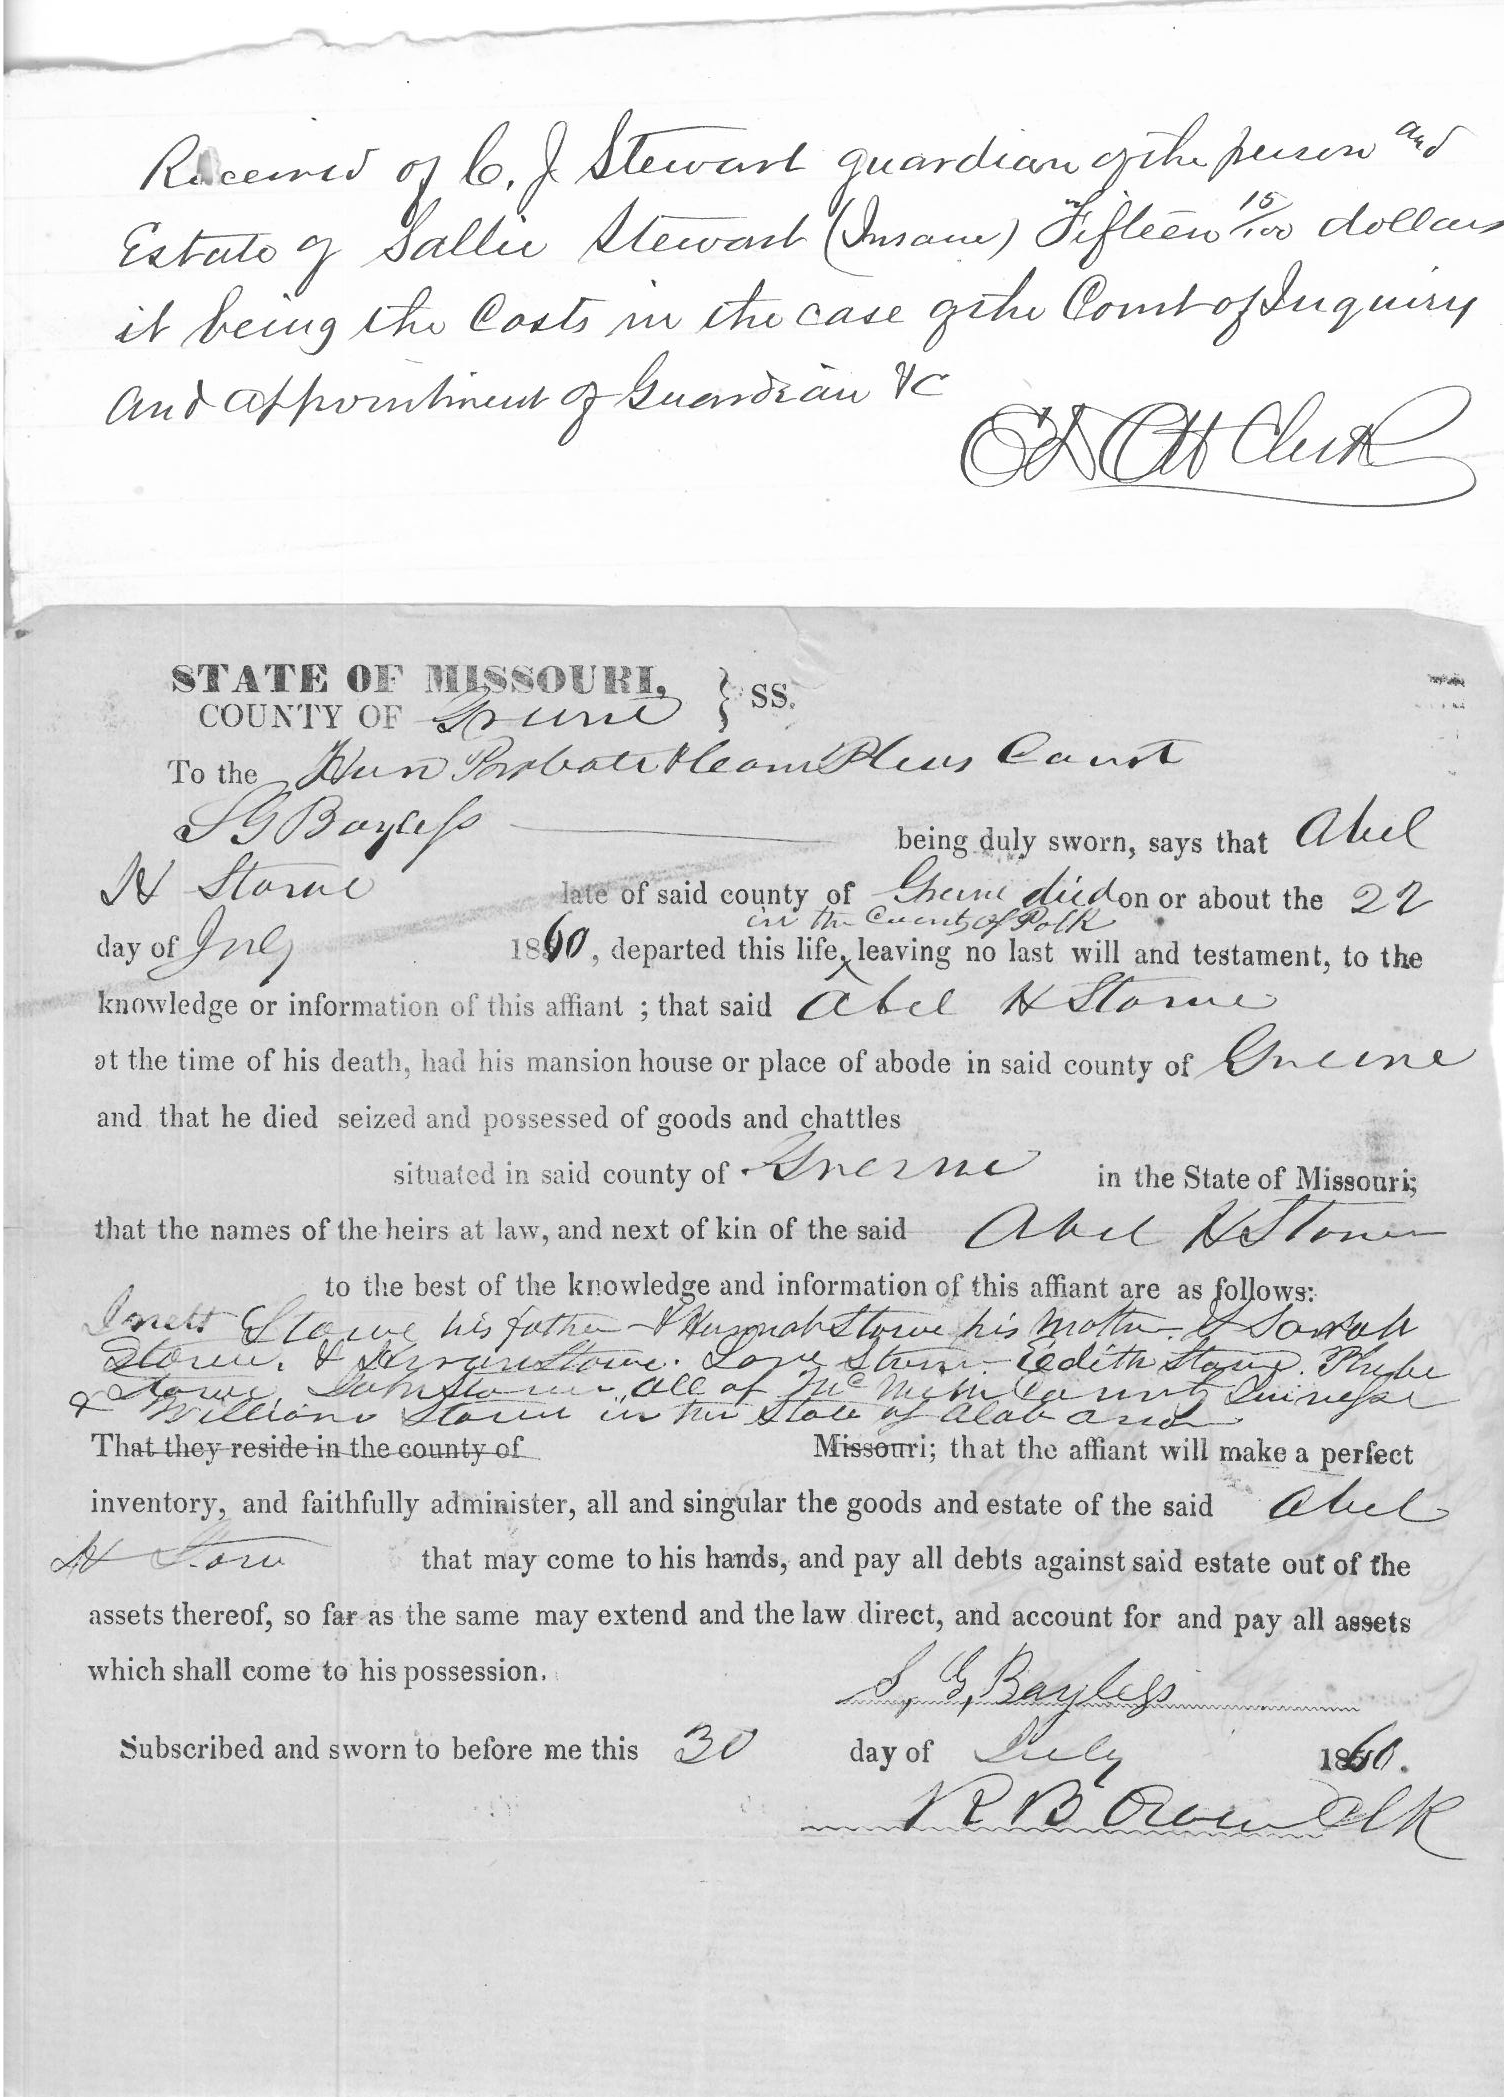 Received of C. J. Stewart guardian of the person and
Estate of Sallie Stewart (Insane) Fifteen 15/100 dollars
it being the Costs in the case of the Court of Inquiry
and appointment of Guardian &C
Ott Clerk
STATE OF MISSOURI,
COUNTY OF Greene } SS.
To the Hon Probate & Com Pleas Court
S G Bayless being duly sworn, says that Abel
H Stowe late of said county of Greene died on or about the 22
in the County of Polk
day of July 1860, departed this life, leaving no last will and testament, to the
knowledge or information of this affiant ; that said Abel H Stowe
at the time of his death, had his mansion house or place of abode in said county of Greene
and that he died seized and possessed of goods and chattles
situated in said county of Greene in the State of Missouri;
that the names of the heirs at law, and next of kin of the said Abel H Stowe
to the best of the knowledge and information of this affiant are as follows:
Stowe his father & Hannah Stowe his Mother & Sarah
Stowe. & Stowe. Stowe - Eedith Stowe. Phebe
Stowe, John Stowe, all of McMinn County
& William Stowe in the State of Alabama
That they reside in the county of Missouri; that the affiant will make a perfect
inventory, and faithfully administer, all and singular the goods and estate of the said Abel
H Stow that may come to his hands, and pay all debts against said estate out of the
assets thereof, so far as the same may extend and the law direct, and account for and pay all assets
which shall come to his possession.
S, G, Bayless
Subscribed and sworn to before me this 30 day of July 1860.
R B Clk